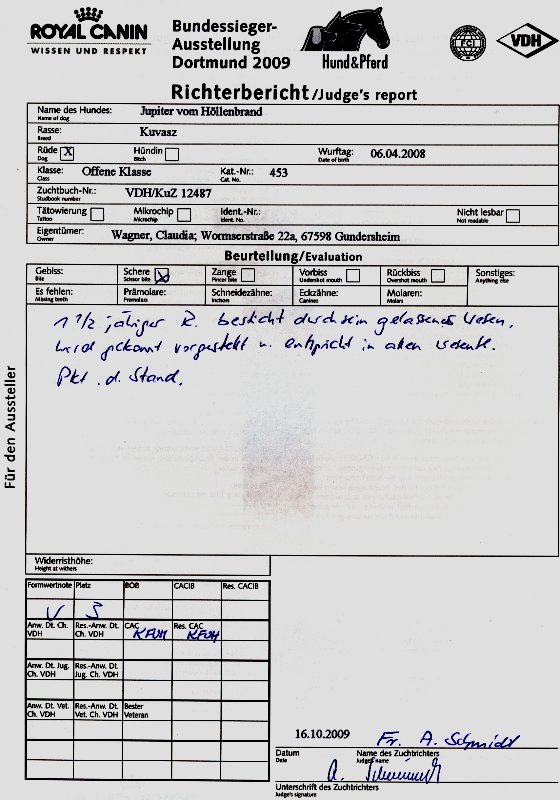 ROYAL CANIN
WISSEN UND RESPEKT
Bundessieger-
Ausstellung
Dortmund 2009
Hund&Pferd
FCI
VDH
Richterbericht/Judge's report
Name des Hundes: Jupiter vom Höllenbrand
Name of dog
Rasse: Kuvasz
Breed
Rüde X Hündin Wurftag: 06.04.2008
Dog Bitch Date of birth
Klasse: Offene Klasse Kat.-Nr.: 453
Class Cat. No.
Zuchtbuch-Nr.: VDH/KuZ 12487
Studbook number
Tätowierung Mikrochip Ident.-Nr.: Nicht lesbar
Tattoo Microchip Ident. No. Not readable
Eigentümer: Wagner, Claudia; Wormserstraße 22a, 67598 Gundersheim
Owner
Beurteilung/Evaluation
Gebiss: Schere X Zange Vorbiss Rückbiss Sonstiges:
Bite Scissor bite Pincer bite Undershot mouth Overshot mouth Anything else
Es fehlen: Prämolare: Schneidezähne: Eckzähne: Molaren:
Missing teeth Premolars Incisors Canines Molars
1 1/2 jähriger R. besticht durch sein gelassenes Wesen,
wird gekonnt vorgestellt u. entspricht in allen wesentl.
Pkt. d. Stand.
Für den Aussteller
Widerristhöhe:
Height at withers
Formwertnote Platz BOB CACIB Res. CACIB
V 3
Anw. Dt. Ch. VDH Res.-Anw. Dt. Ch. VDH CAC KFUH Res. CAC KFUH
Anw. Dt. Jug. Ch. VDH Res.-Anw. Dt. Jug. Ch. VDH
Anw. Dt. Vet. Ch. VDH Res.-Anw. Dt. Vet. Ch. VDH Bester Veteran
16.10.2009 Fr. A. Schmidt
Datum Name des Zuchtrichters
Date Judge's name
A. Schmidt
Unterschrift des Zuchtrichters
Judge's signature